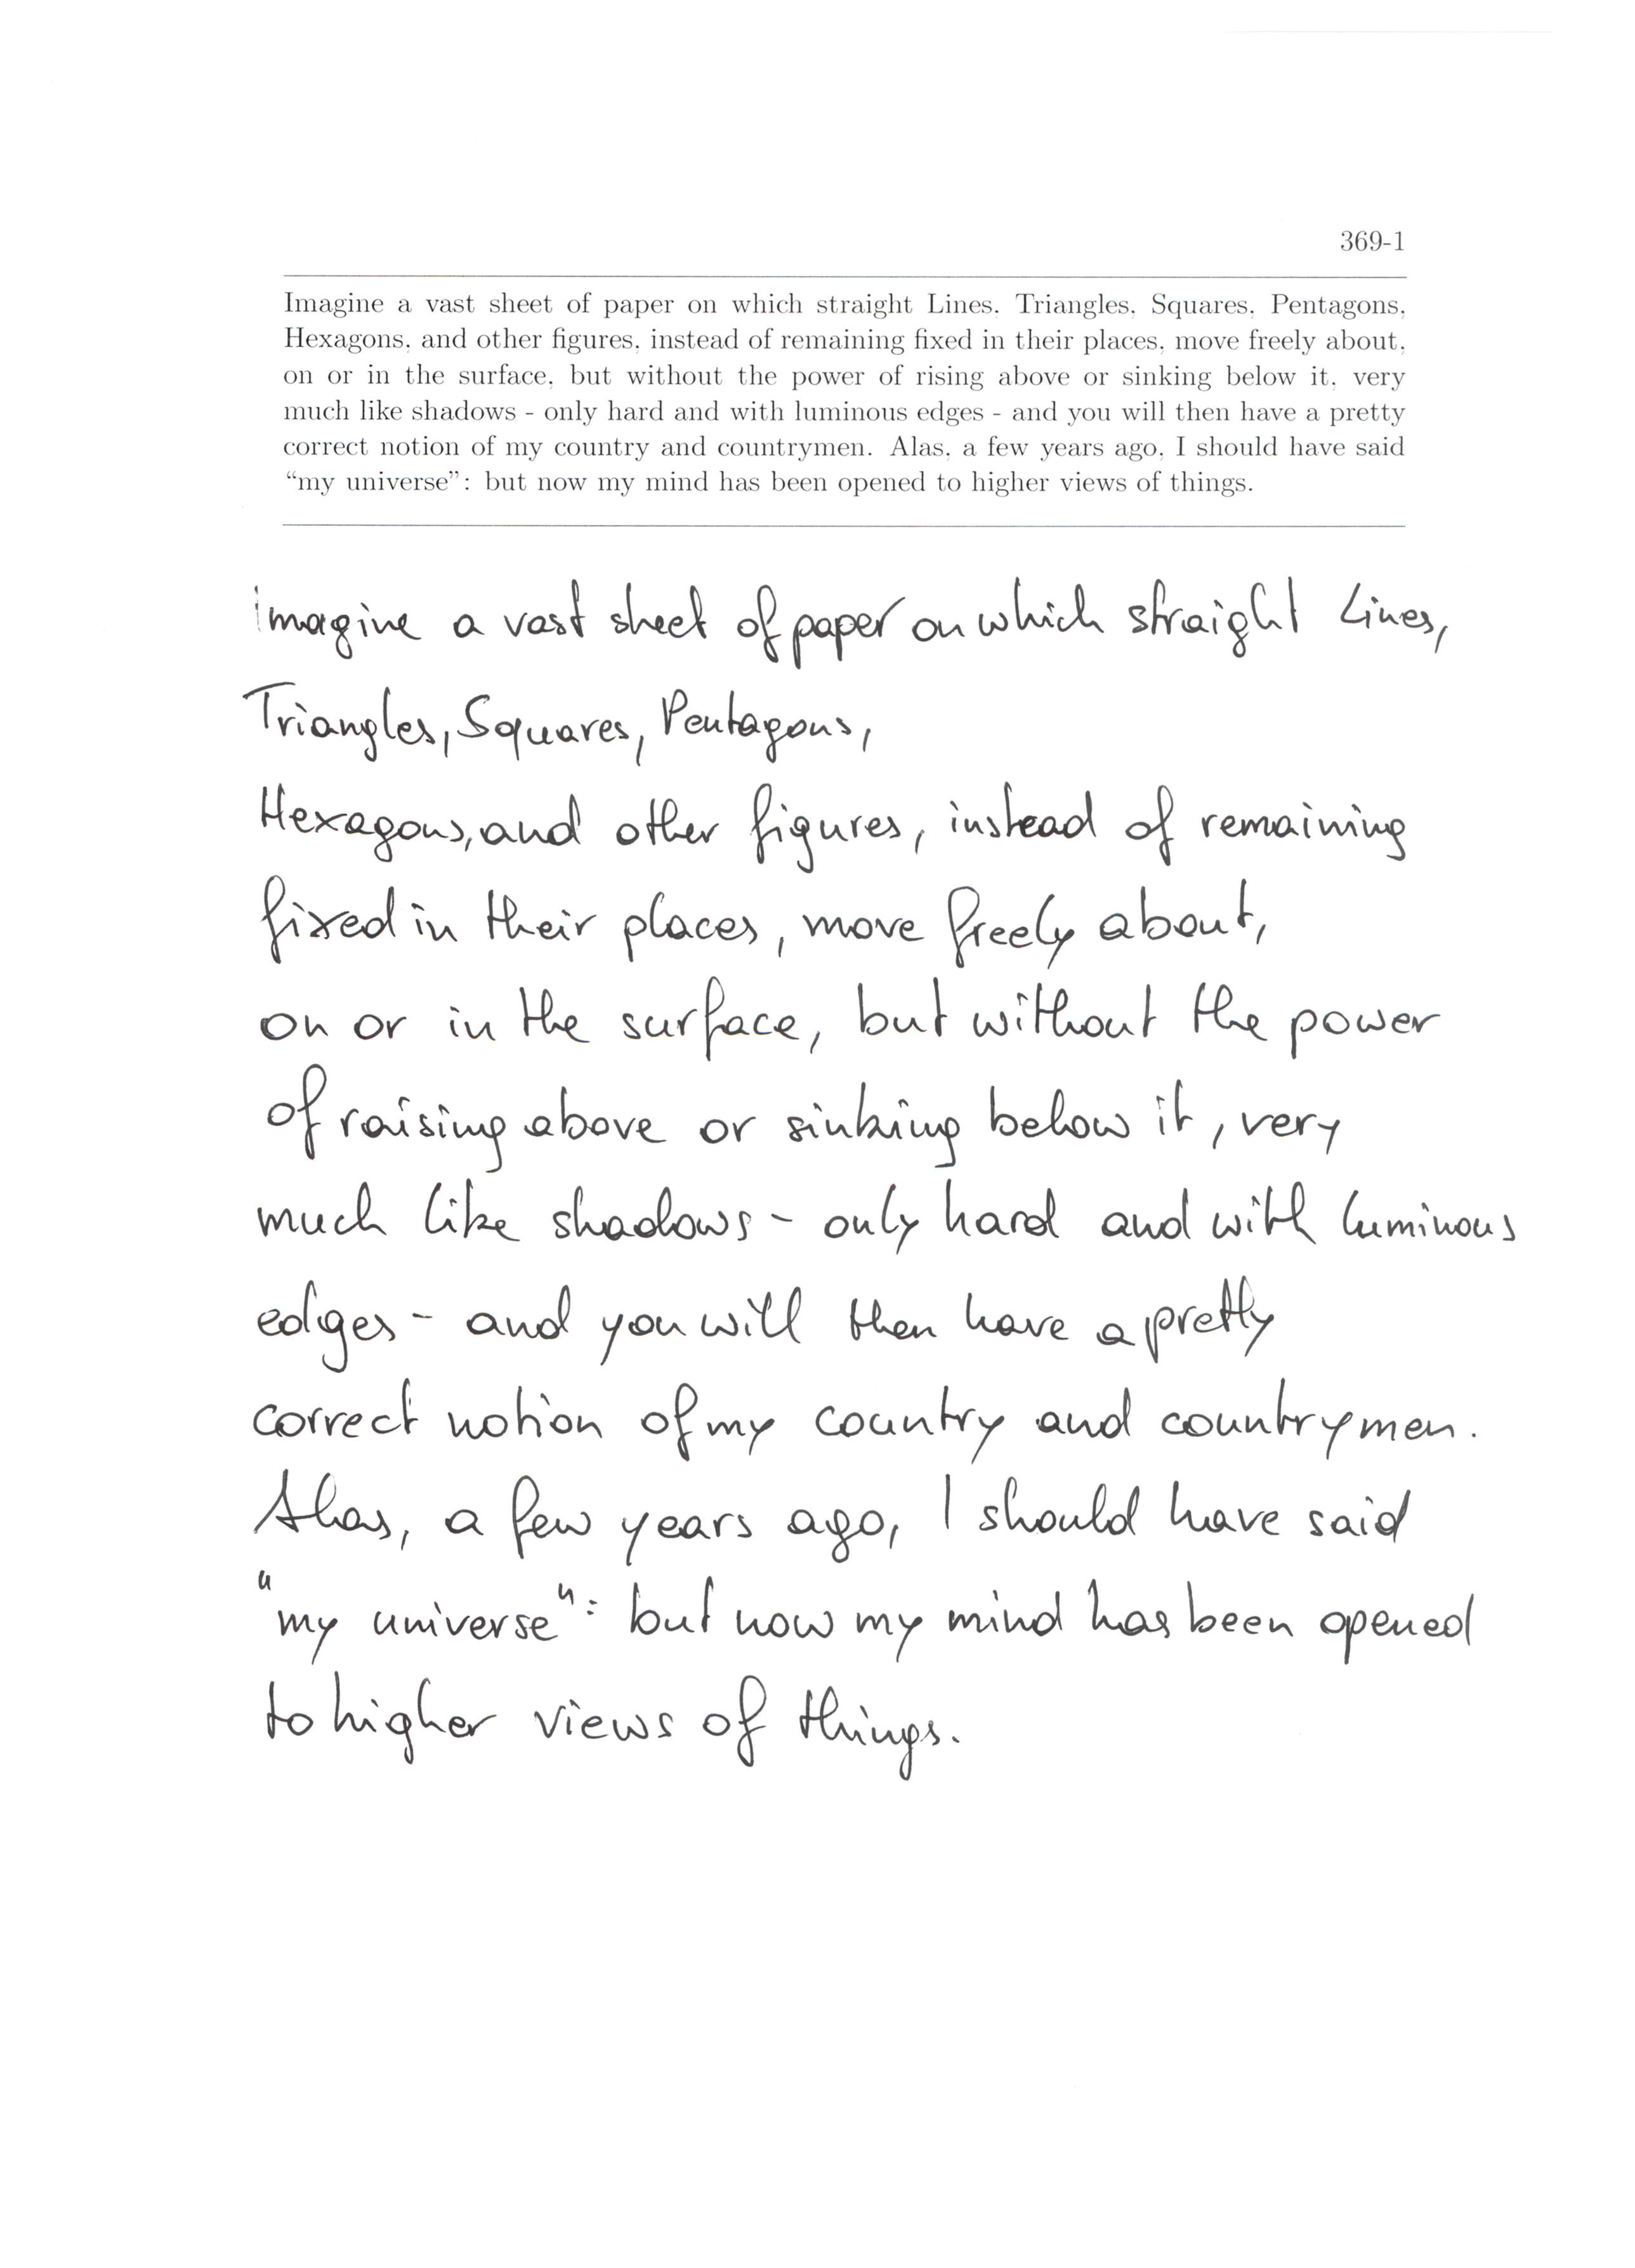 369-1
Imagine a vast sheet of paper on which straight Lines, Triangles, Squares, Pentagons,
Hexagons, and other figures, instead of remaining fixed in their places, move freely about,
on or in the surface, but without the power of rising above or sinking below it, very
much like shadows - only hard and with luminous edges - and you will then have a pretty
correct notion of my country and countrymen. Alas, a few years ago, I should have said
“my universe”: but now my mind has been opened to higher views of things.
imagine a vast sheet of paper on which straight Lines,
Triangles, Squares, Pentagons,
Hexagons, and other figures, instead of remaining
fixed in their places, move freely about,
on or in the surface, but without the power
of raising above or sinking below it, very
much like shadows - only hard and with luminous
edges - and you will then have a pretty
correct notion of my country and countrymen.
Alas, a few years ago, I should have said
“my universe”: but now my mind has been opened
to higher views of things.